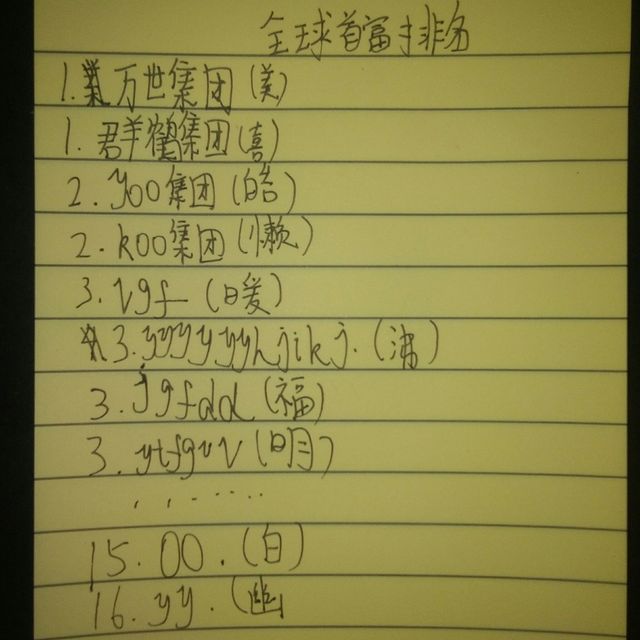 全球首富排名
1. 万世集团(美)
1. 群鹤集团(喜)
2. yoo集团(皓)
2. koo集团(懒)
3. vgf (暖)
3. yyyyyyhjikj.(沸)
3. jgfdd(福)
3. ytfguv(明)
.......
15. 00.(白)
16. yy.(幽